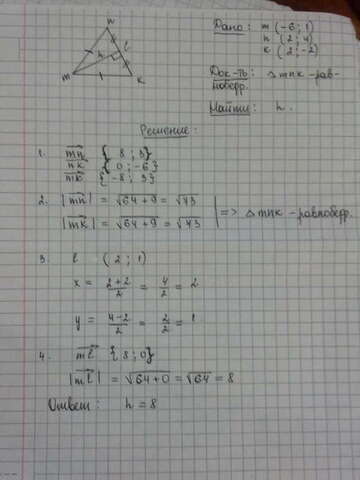 n
Дано: m (-6; 1)
n (2; 4)
k (2; -2)
h
l
m
k
Док-ть: Δ mnk -рав-
нобедр.
Найти: h.
Решение:
1. mn {8; 3}
nk {0; -6}
mk {-8; 3}
2. |mn| = √64+9 = √73
|mk| = √64+9 = √73
=> Δ mnk -равнобедр.
3. l (2; 1)
x = 2+2/2 = 4/2 = 2
y = 4-2/2 = 2/2 = 1
4. ml {8; 0}
|ml| = √64+0 = √64 = 8
Ответ: h = 8